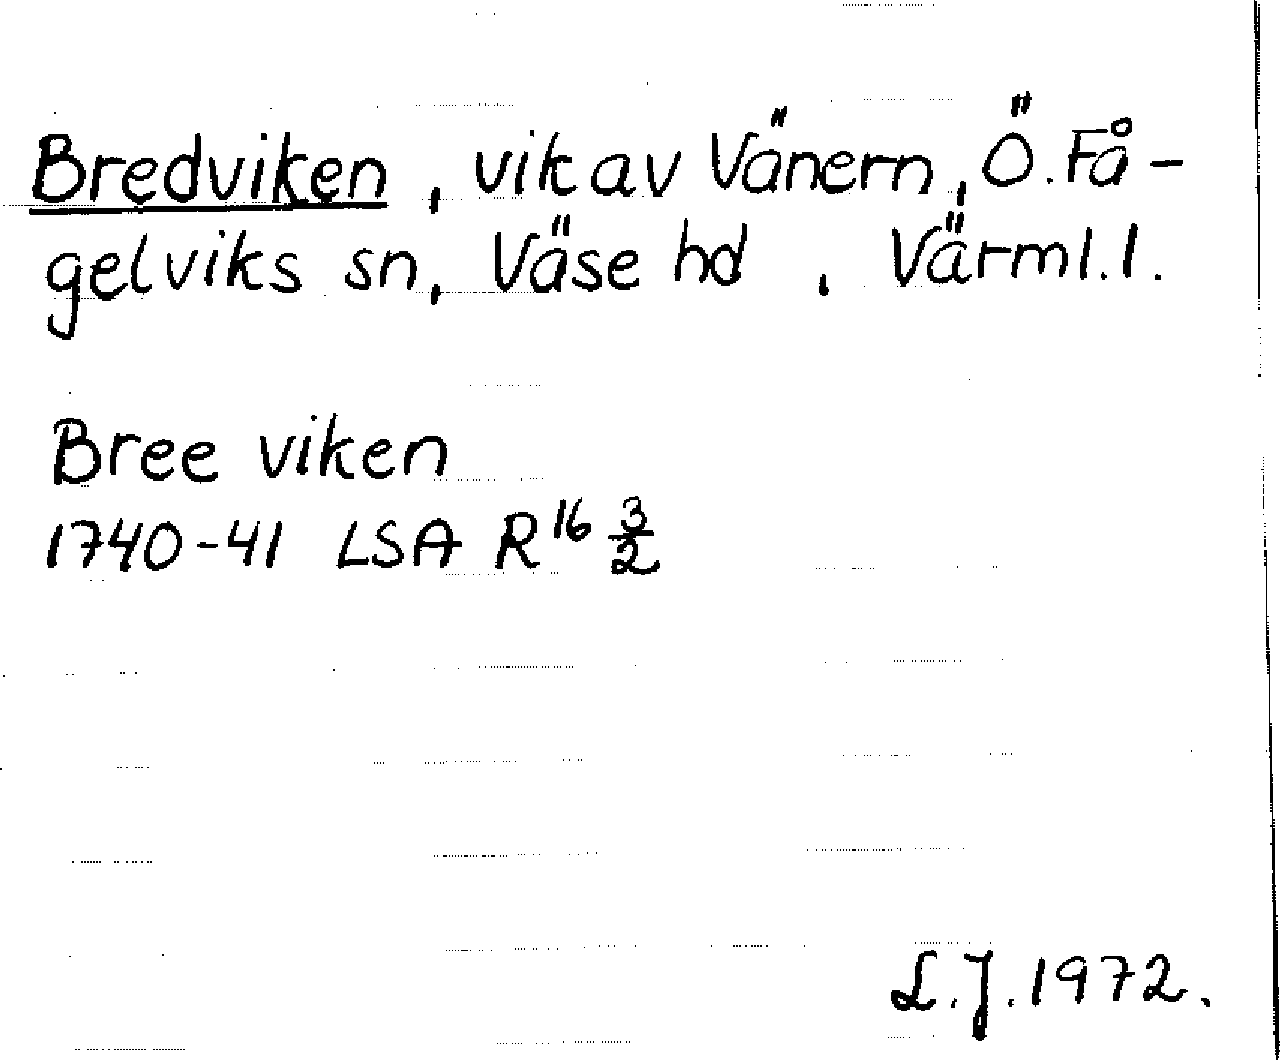 Bredviken, vik av Vänern, Ö. Få-
gelviks sn, Väse hd, Värml. l.
Bree viken
1740-41 LSA R16 3/2
L.J. 1972.